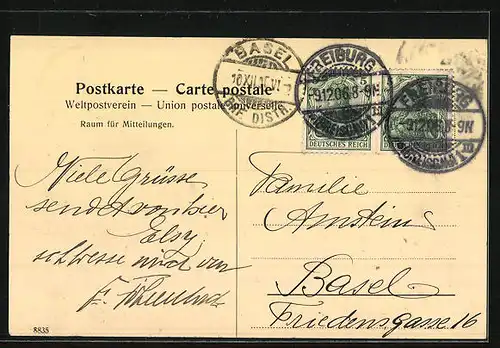 Postkarte — Carte postale
Weltpostverein — Union postale universelle
Raum für Mitteilungen.
BASEL
10.XII.
BRF. DISTR.
FREIBURG
-9.12.06.8-9N
(BREISGAU)
DEUTSCHES REICH
FREIBURG
-9.12.06.8-9N
(BREISGAU)
Viele Grüsse
sendet von hier
Elsy
Familie
Amstein
Basel
Friedensgasse 16
8835